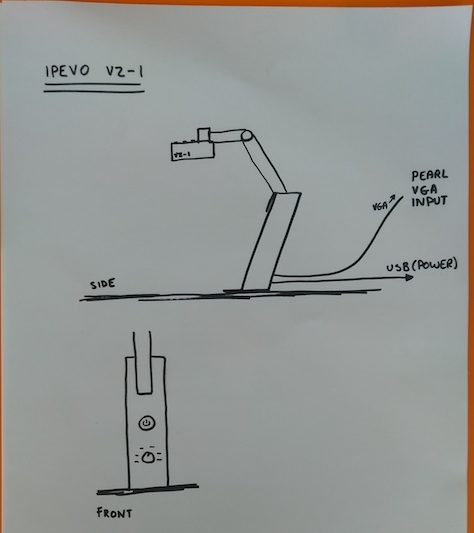 IPEVO VZ-1
VZ-1
PEARL
VGA
INPUT
VGA
USB (POWER)
SIDE
FRONT